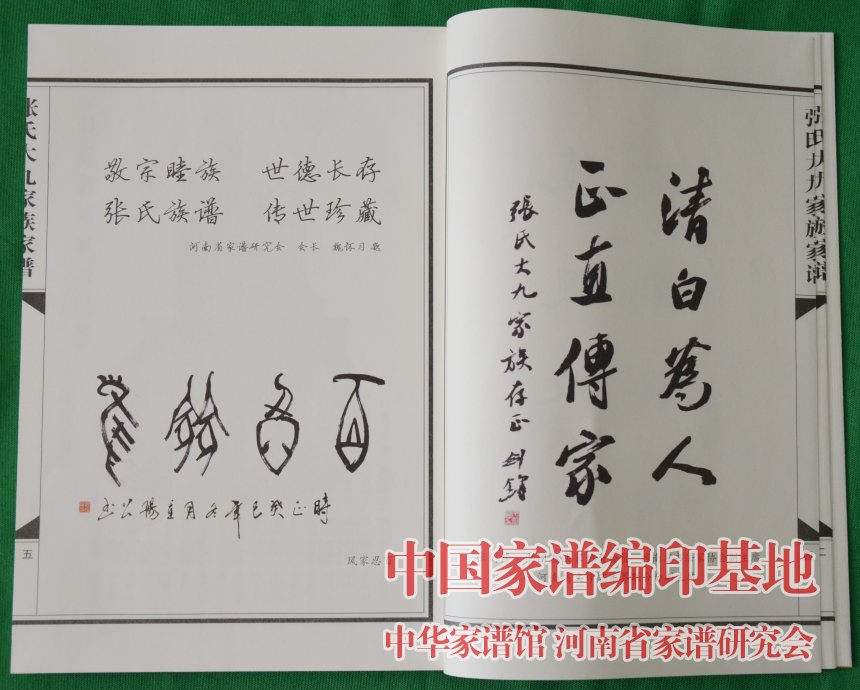 张氏大九家族家谱
敬宗睦族 世德长存
张氏族谱 传世珍藏
河南省家谱研究会 会长 魏怀习 题
百
時正癸巳年冬月
五
张氏大九家族家谱
清白為人
正直傳家
張氏大九家族存正
中国家谱编印基地
中华家谱馆 河南省家谱研究会